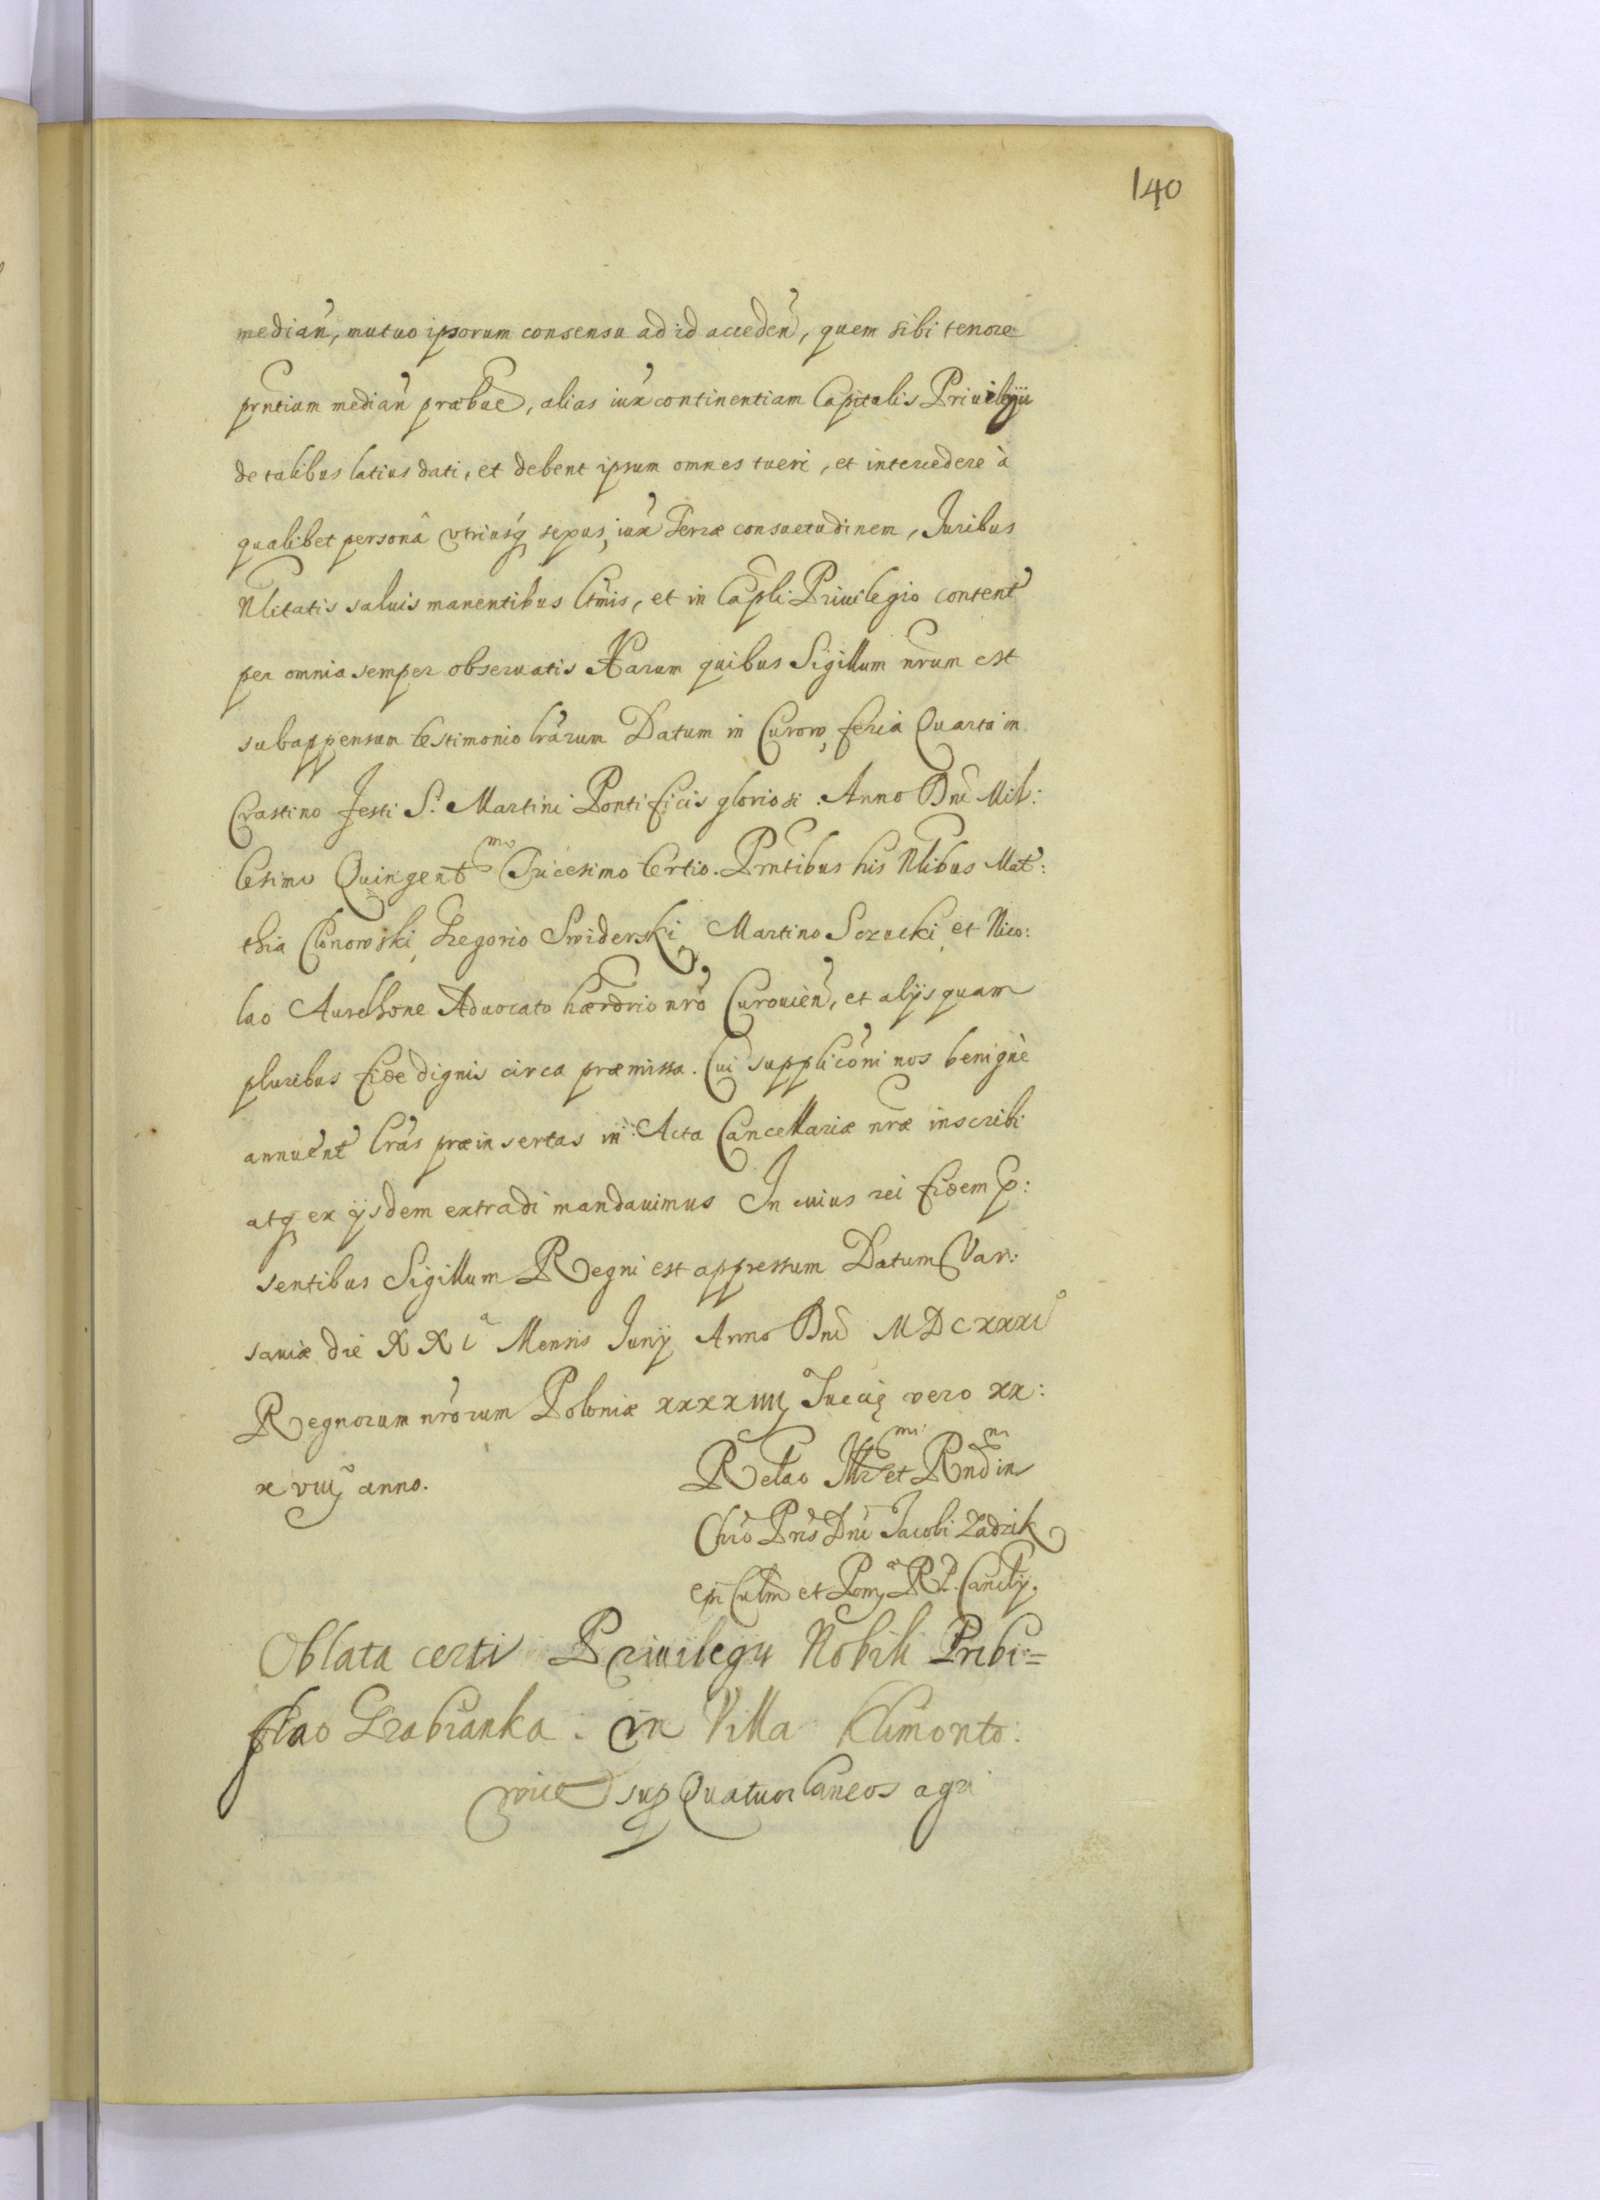 140
median, mutuo ipsorum consensu ad id acceden, quem sibi tenore
prntium median præbue, alias iux continentiam Capitalis Priuilegij
de talibus latius dati, et debent ipsum omnes tueri, et intercedere à
qualibet personâ vtriusq sexus, iux Terræ consuetudinem, Juribus
Nlitatis saluis manentibus ltmis, et in Capli Priuilegio content
per omnia semper obseruatis Harum quibus Sigillum nrum est
subappensum testimonio lrarum Datum in Curow, feria Quarta in
Crastino festi S. Martini Pontificis gloriosi. Anno Dni Mil:
lesimo Quingent mo Tricesimo tertio. Prntibus his Nlibus Mat:
thia Clonowski, Gregorio Swiderski, Martino Sczucki, et Nico:
lao Aurelhone Aduocato hærdrio nro Curouien, et alijs quam
pluribus fide dignis circa præmissa. Cui supplicôni nos benignè
annuent lras præinsertas in Acta Cancellariæ nræ inscribi
atq ex ijsdem extradi mandauimus In cuius rei fidem p:
sentibus Sigillum Regni est appressum Datum Var:
sauiæ die XXI a Mensis Junij Anno Dni MDCXXXI o
Regnorum nrorum Poloniæ xxxxiiii Sueciæ vero xx:
x viij anno.
Relao Illr mi et Rnd mi in
Chro Pris Dni Jacobi Zadzik
epi Culm et Pom, R. P. Cancllrij.
Oblata certi Priuilegij Nobili Pribi=
slao Grabianka in Villa Klimonto:
wice sup Quatuor laneos agri